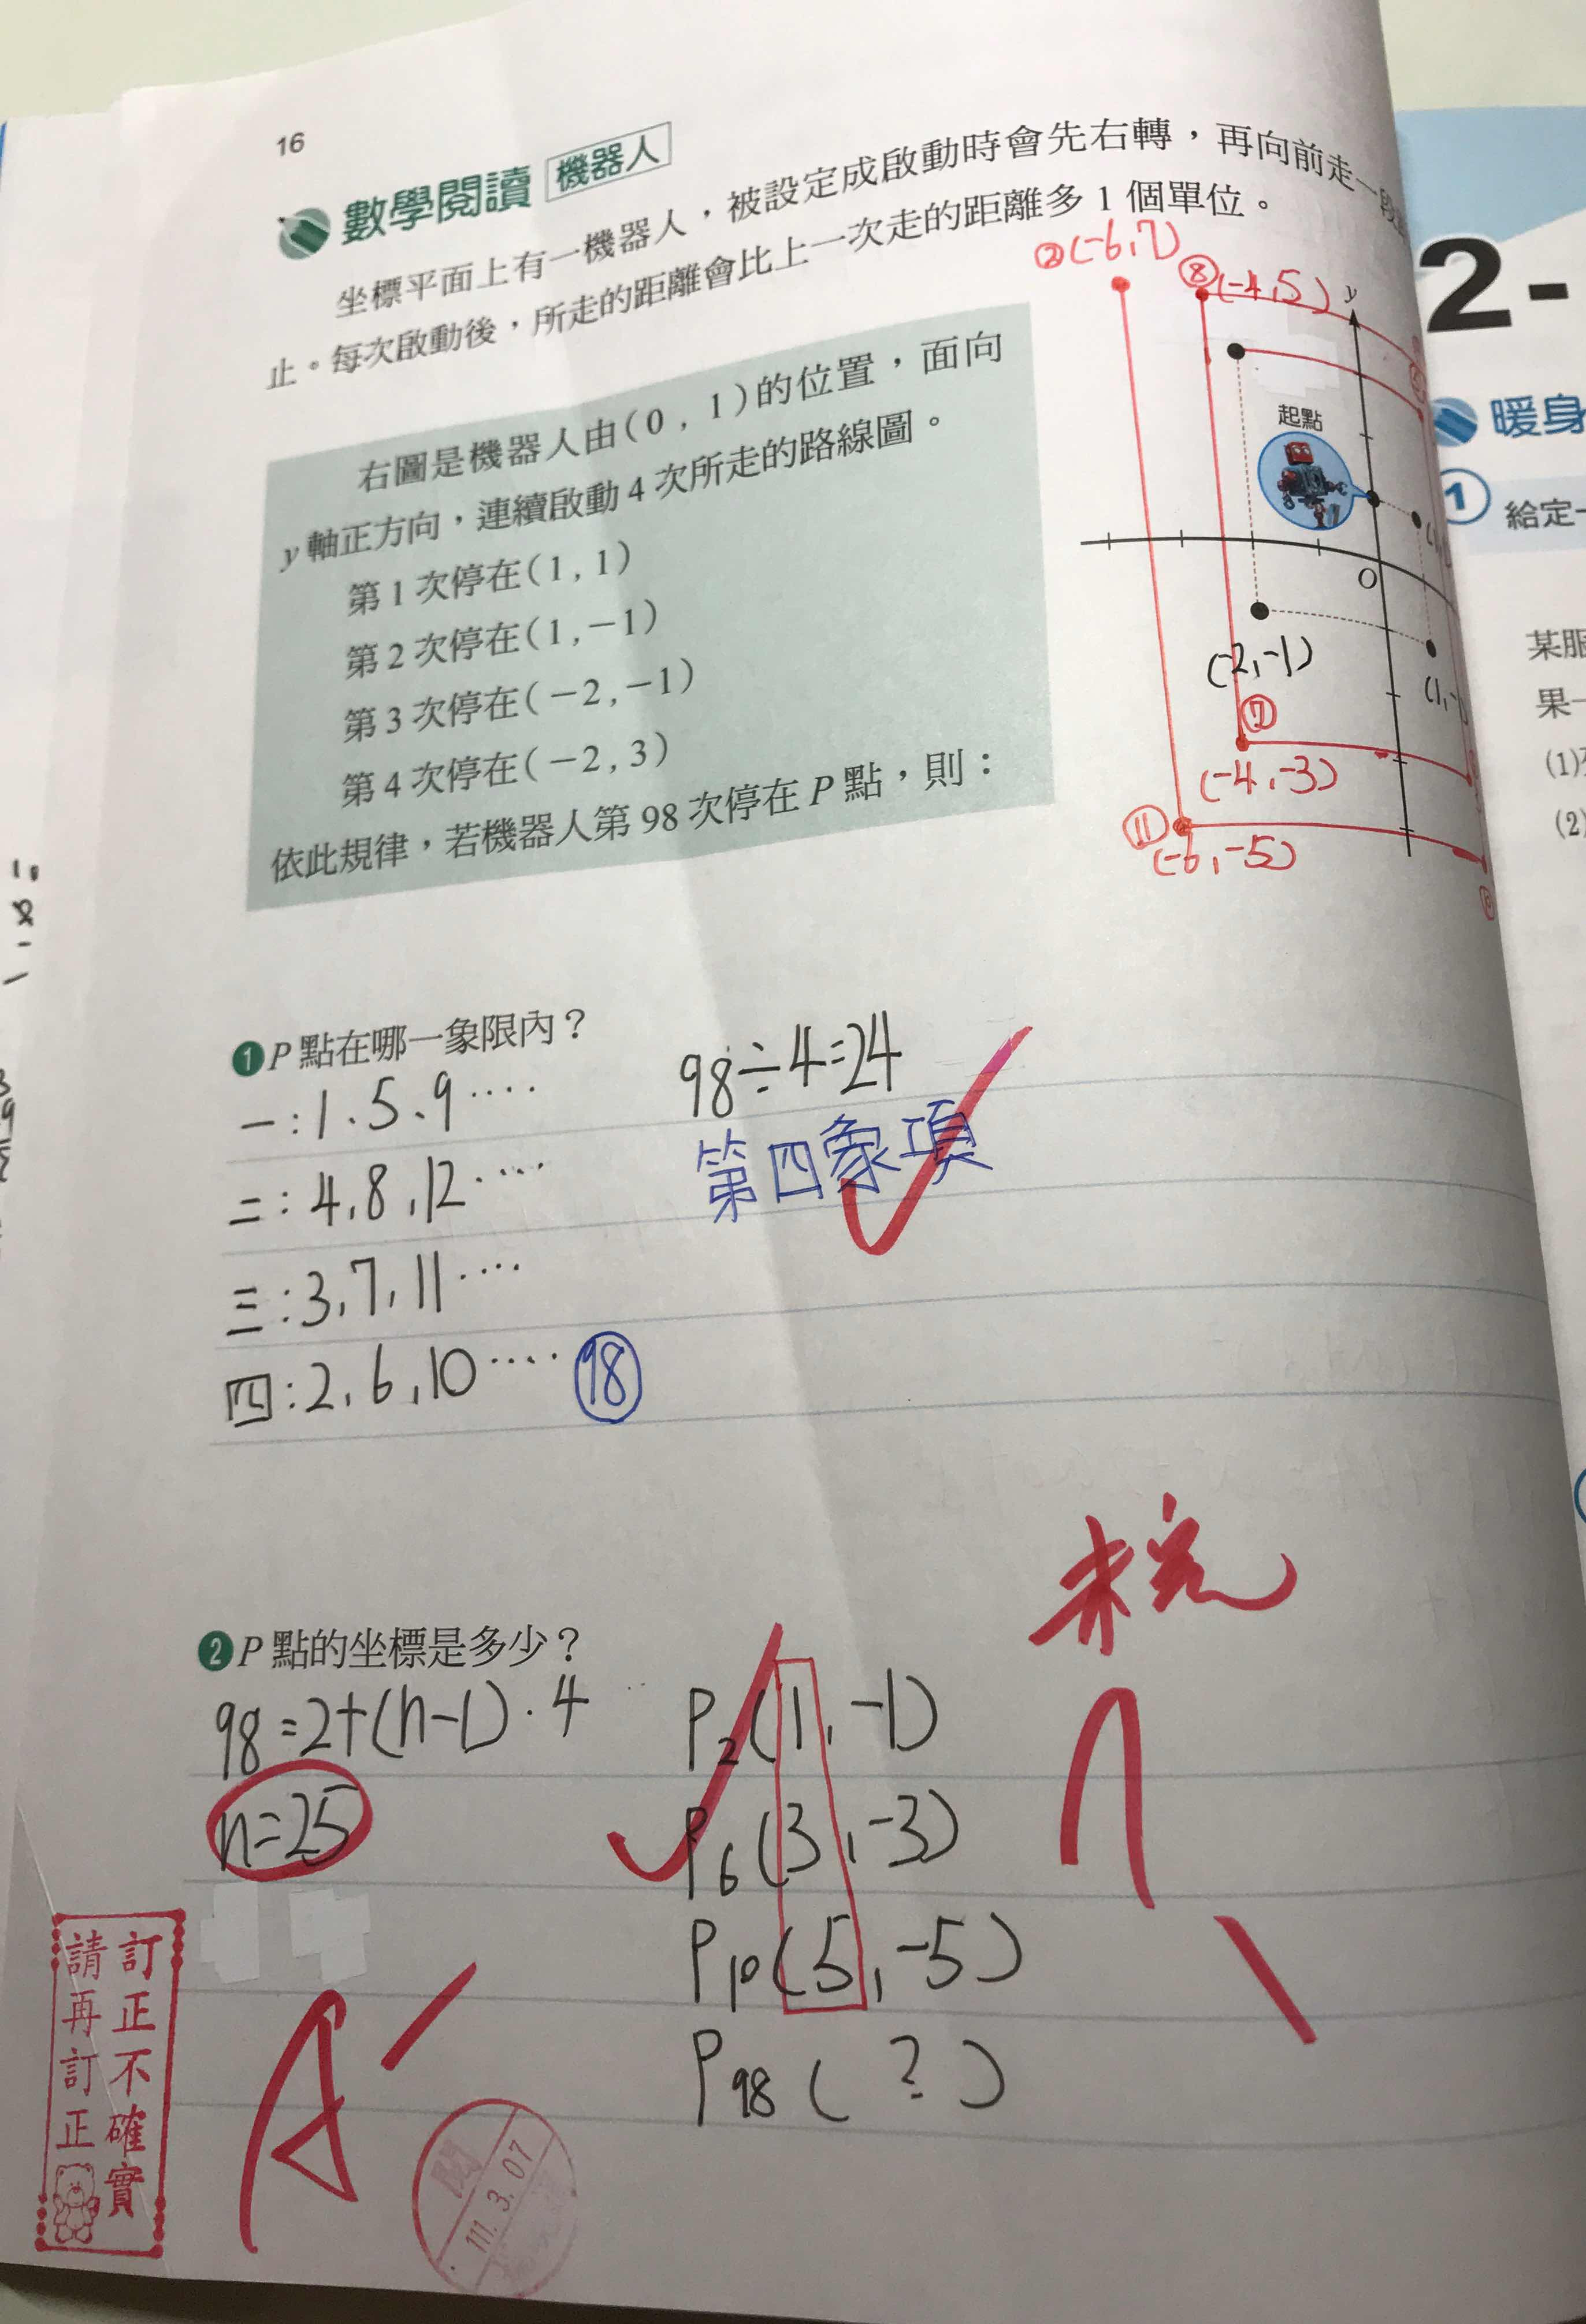 16
數學閱讀 機器人
坐標平面上有一機器人，被設定成啟動時會先右轉，再向前走一段
止。每次啟動後，所走的距離會比上一次走的距離多1個單位。
右圖是機器人由(0,1)的位置，面向
y軸正方向，連續啟動4次所走的路線圖。
第1次停在(1,1)
第2次停在(1,-1)
第3次停在(-2,-1)
第4次停在(-2,3)
依此規律，若機器人第98次停在P點，則：
(-6,7)
⑧(-4,5)
y
起點
O
(-2,-1)
(1,-
⑦
(-4,-3)
⑪
(-6,-5)
❶P點在哪一象限內？
一:1、5、9....
二:4,8,12....
三:3,7,11....
四:2,6,10....98
98÷4=24
第四象項
❷P點的坐標是多少？
98=2+(n-1)·4
n=25
P2(1,-1)
P6(3,-3)
P10(5,-5)
P98( ? )
未完
訂正不確實
請再訂正
A
閱
111.3.07
2-
暖身
1
給定一
某服
果一
(1)
(2)